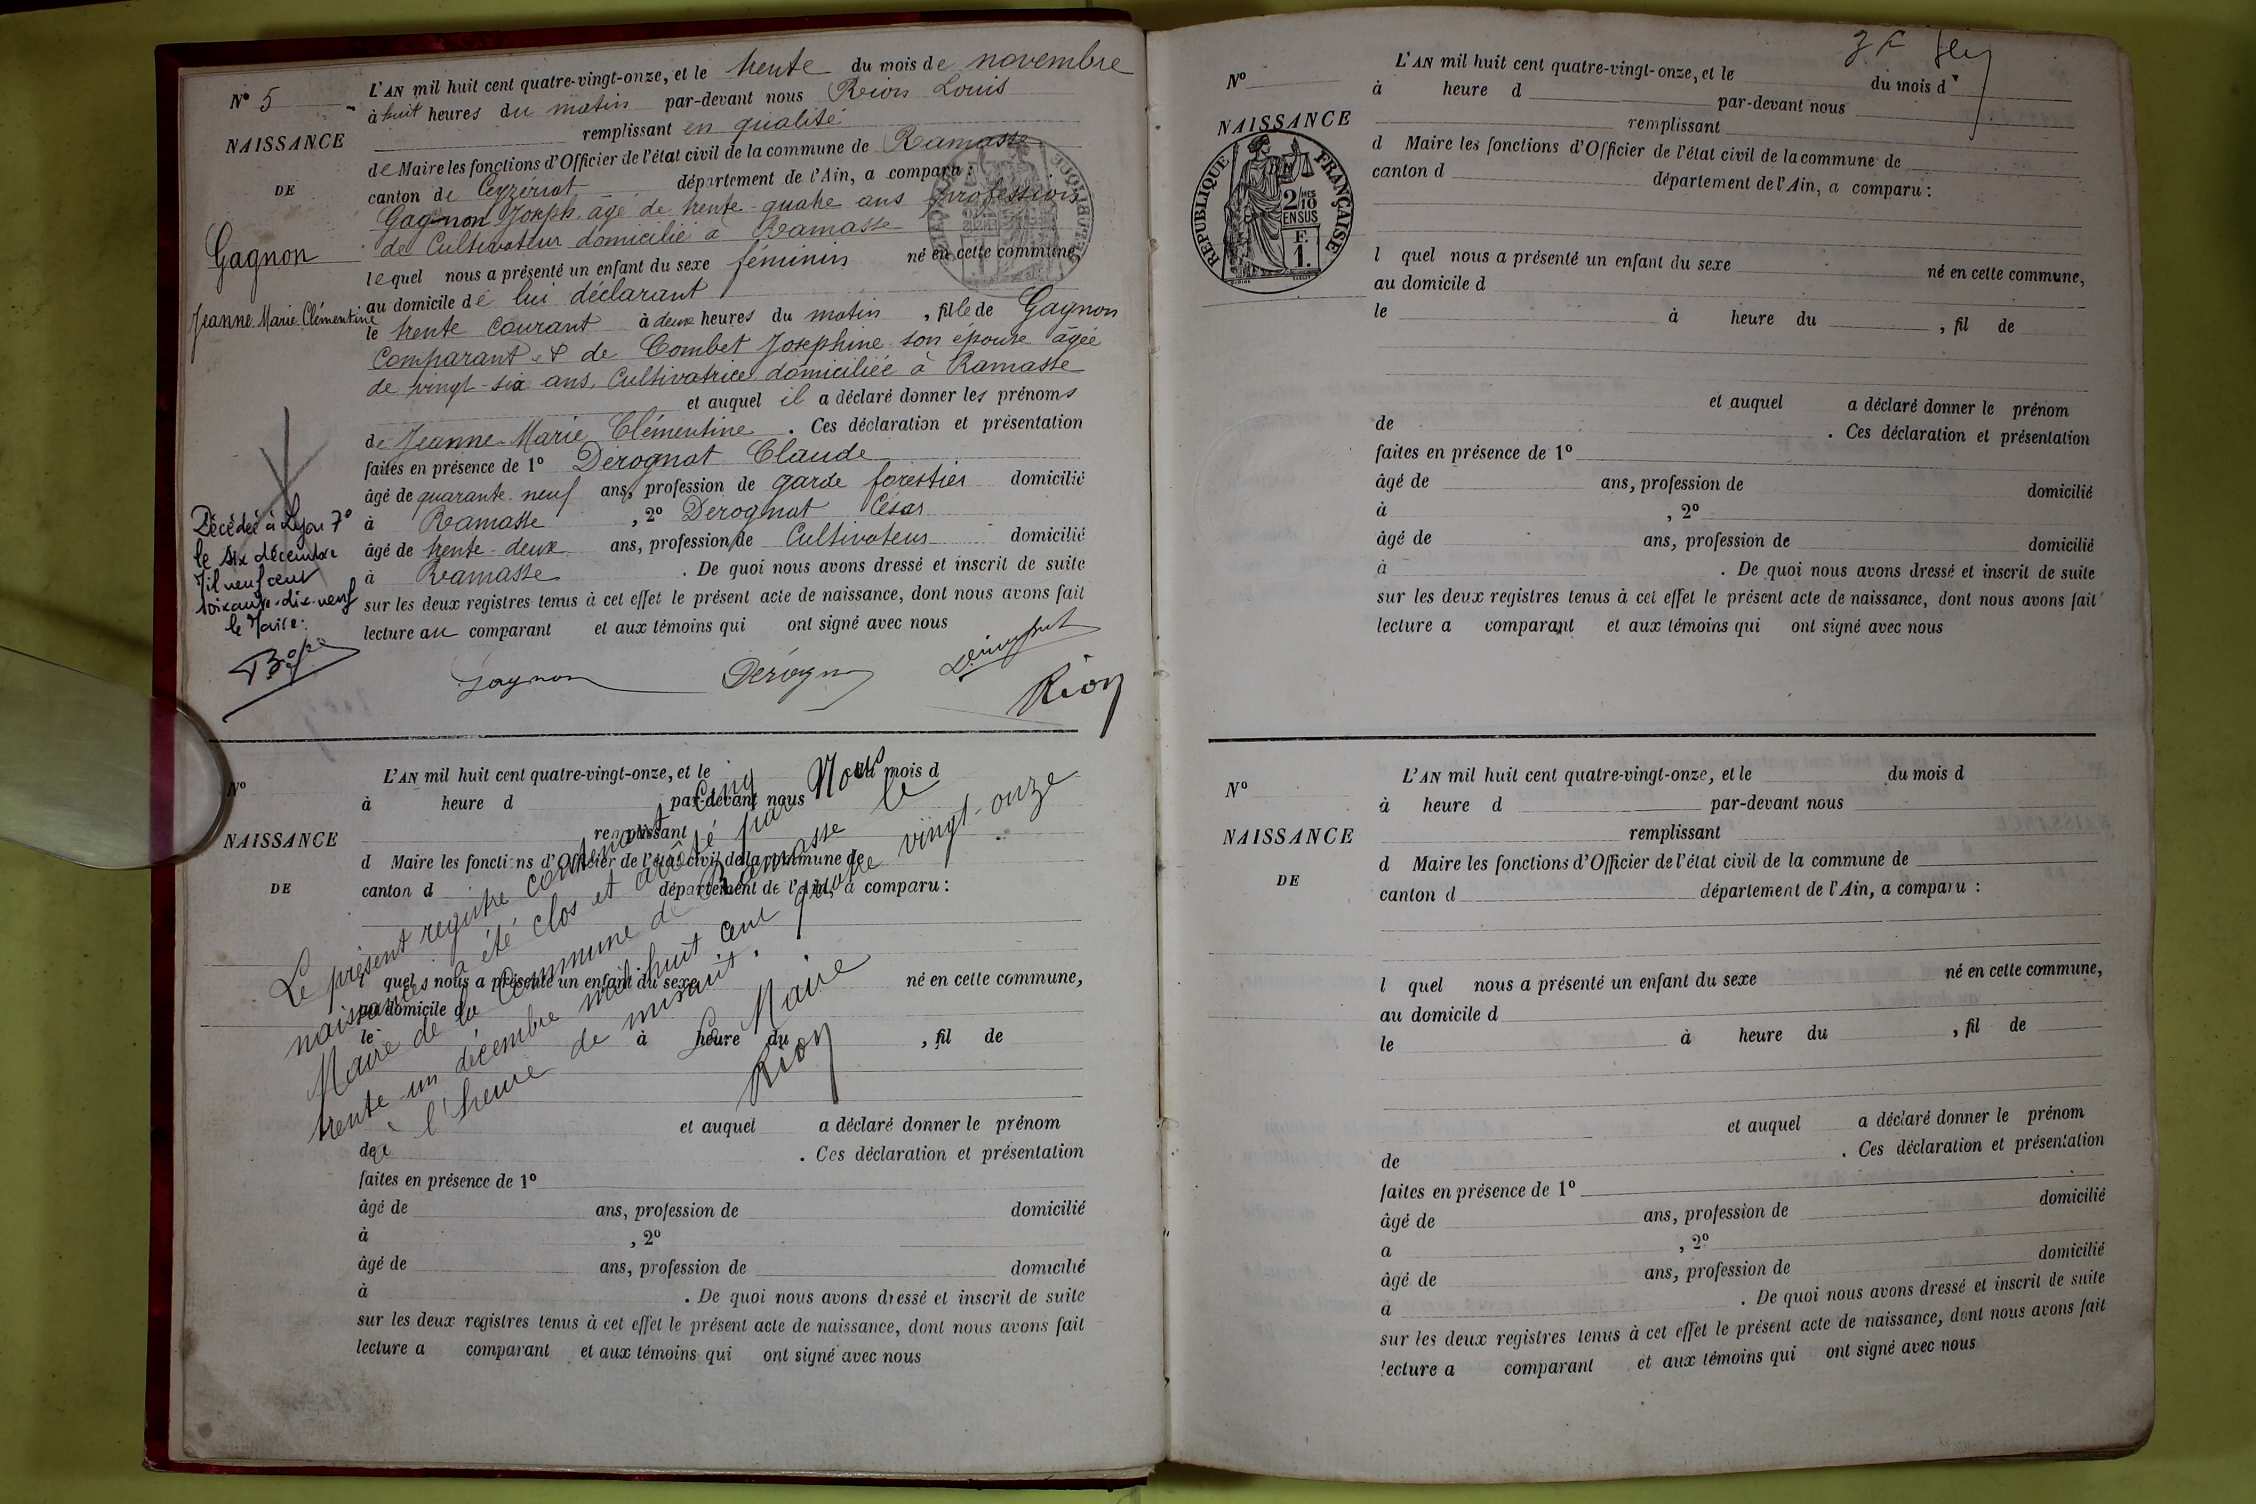 N° 5
NAISSANCE
DE
Gagnon
Jeanne Marie Clémentine
L'AN mil huit cent quatre-vingt-onze, et le trente du mois de novembre
à huit heures du matin par-devant nous Rion Louis
remplissant en qualité
de Maire les fonctions d'Officier de l'état civil de la commune de Ramasse
canton de Ceyzériat département de l'Ain, a comparu :
Gagnon Joseph âgé de trente-quatre ans profession
de Cultivateur domicilié à Ramasse
lequel nous a présenté un enfant du sexe féminin né en cette commune,
au domicile de lui déclarant
le trente courant à deux heures du matin, fille de Gagnon
Comparant & de Combet Josephine son épouse âgée
de vingt-six ans, Cultivatrice domiciliée à Ramasse
et auquel il a déclaré donner les prénoms
de Jeanne Marie Clémentine. Ces déclaration et présentation
faites en présence de 1° Derognat Claude
âgé de quarante-neuf ans, profession de garde forestier domicilié
à Ramasse, 2° Derognat César
âgé de trente-deux ans, profession de Cultivateur domicilié
à Ramasse. De quoi nous avons dressé et inscrit de suite
sur les deux registres tenus à cet effet le présent acte de naissance, dont nous avons fait
lecture au comparant et aux témoins qui ont signé avec nous
Décédée à Lyon 7°
le six décembre
mil neuf cent
soixante-dix-neuf
le Maire:
Gagnon Rion
N°
NAISSANCE
DE
L'AN mil huit cent quatre-vingt-onze, et le du mois d
à heure d par-devant nous
remplissant
d Maire les fonctions d'Officier de l'état civil de la commune de
canton d département de l'Ain, a comparu :
l quel nous a présenté un enfant du sexe né en cette commune,
au domicile d
le à heure du , fil de
et auquel a déclaré donner le prénom
de . Ces déclaration et présentation
faites en présence de 1°
âgé de ans, profession de domicilié
à , 2°
âgé de ans, profession de domicilié
à . De quoi nous avons dressé et inscrit de suite
sur les deux registres tenus à cet effet le présent acte de naissance, dont nous avons fait
lecture a comparant et aux témoins qui ont signé avec nous
Le présent registre contenant cinq
naissances a été clos et arrêté par Nous
Maire de la Commune de Ramasse le
trente un décembre mil huit cent quatre vingt-onze
à l'heure de minuit.
Le Maire
Rion
N°
NAISSANCE
REPUBLIQUE FRANÇAISE
2/10 EN SUS
F.
1.
L'AN mil huit cent quatre-vingt-onze, et le du mois d
à heure d par-devant nous
remplissant
d Maire les fonctions d'Officier de l'état civil de la commune de
canton d département de l'Ain, a comparu :
l quel nous a présenté un enfant du sexe né en cette commune,
au domicile d
le à heure du , fil de
et auquel a déclaré donner le prénom
de . Ces déclaration et présentation
faites en présence de 1°
âgé de ans, profession de domicilié
à , 2°
âgé de ans, profession de domicilié
à . De quoi nous avons dressé et inscrit de suite
sur les deux registres tenus à cet effet le présent acte de naissance, dont nous avons fait
lecture a comparant et aux témoins qui ont signé avec nous
N°
NAISSANCE
DE
L'AN mil huit cent quatre-vingt-onze, et le du mois d
à heure d par-devant nous
remplissant
d Maire les fonctions d'Officier de l'état civil de la commune de
canton d département de l'Ain, a comparu :
l quel nous a présenté un enfant du sexe né en cette commune,
au domicile d
le à heure du , fil de
et auquel a déclaré donner le prénom
de . Ces déclaration et présentation
faites en présence de 1°
âgé de ans, profession de domicilié
a , 2°
âgé de ans, profession de domicilié
à . De quoi nous avons dressé et inscrit de suite
sur les deux registres tenus à cet effet le présent acte de naissance, dont nous avons fait
lecture a comparant et aux témoins qui ont signé avec nous